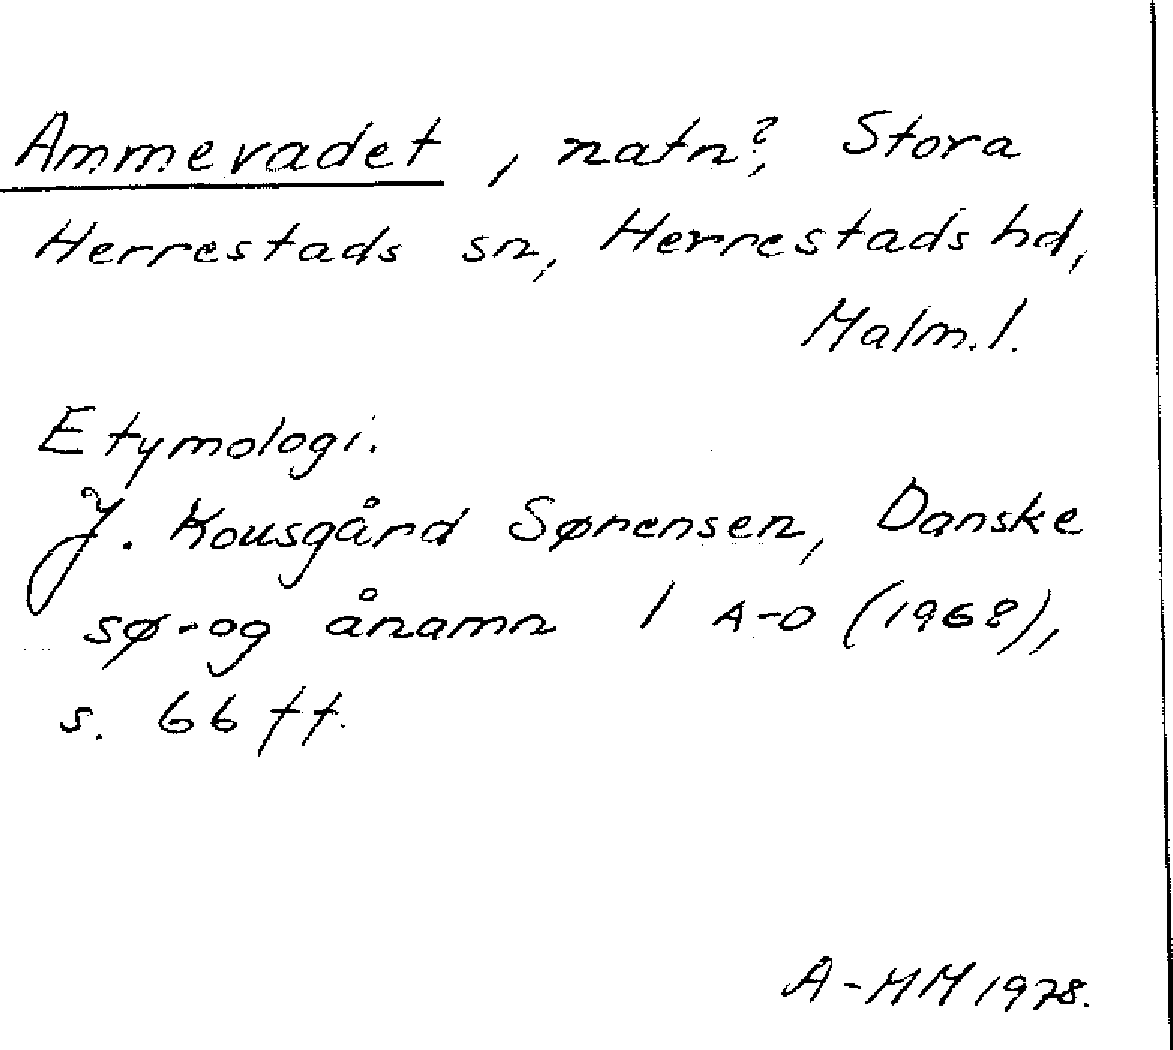 Ammevadet, natn?, Stora
Herrestads sn, Herrestads hd,
Malm.l.
Etymologi.
J. Kousgård Sørensen, Danske
sø- og ånamn 1 A-D (1968),
s. 66 ff.
A-MM 1978.